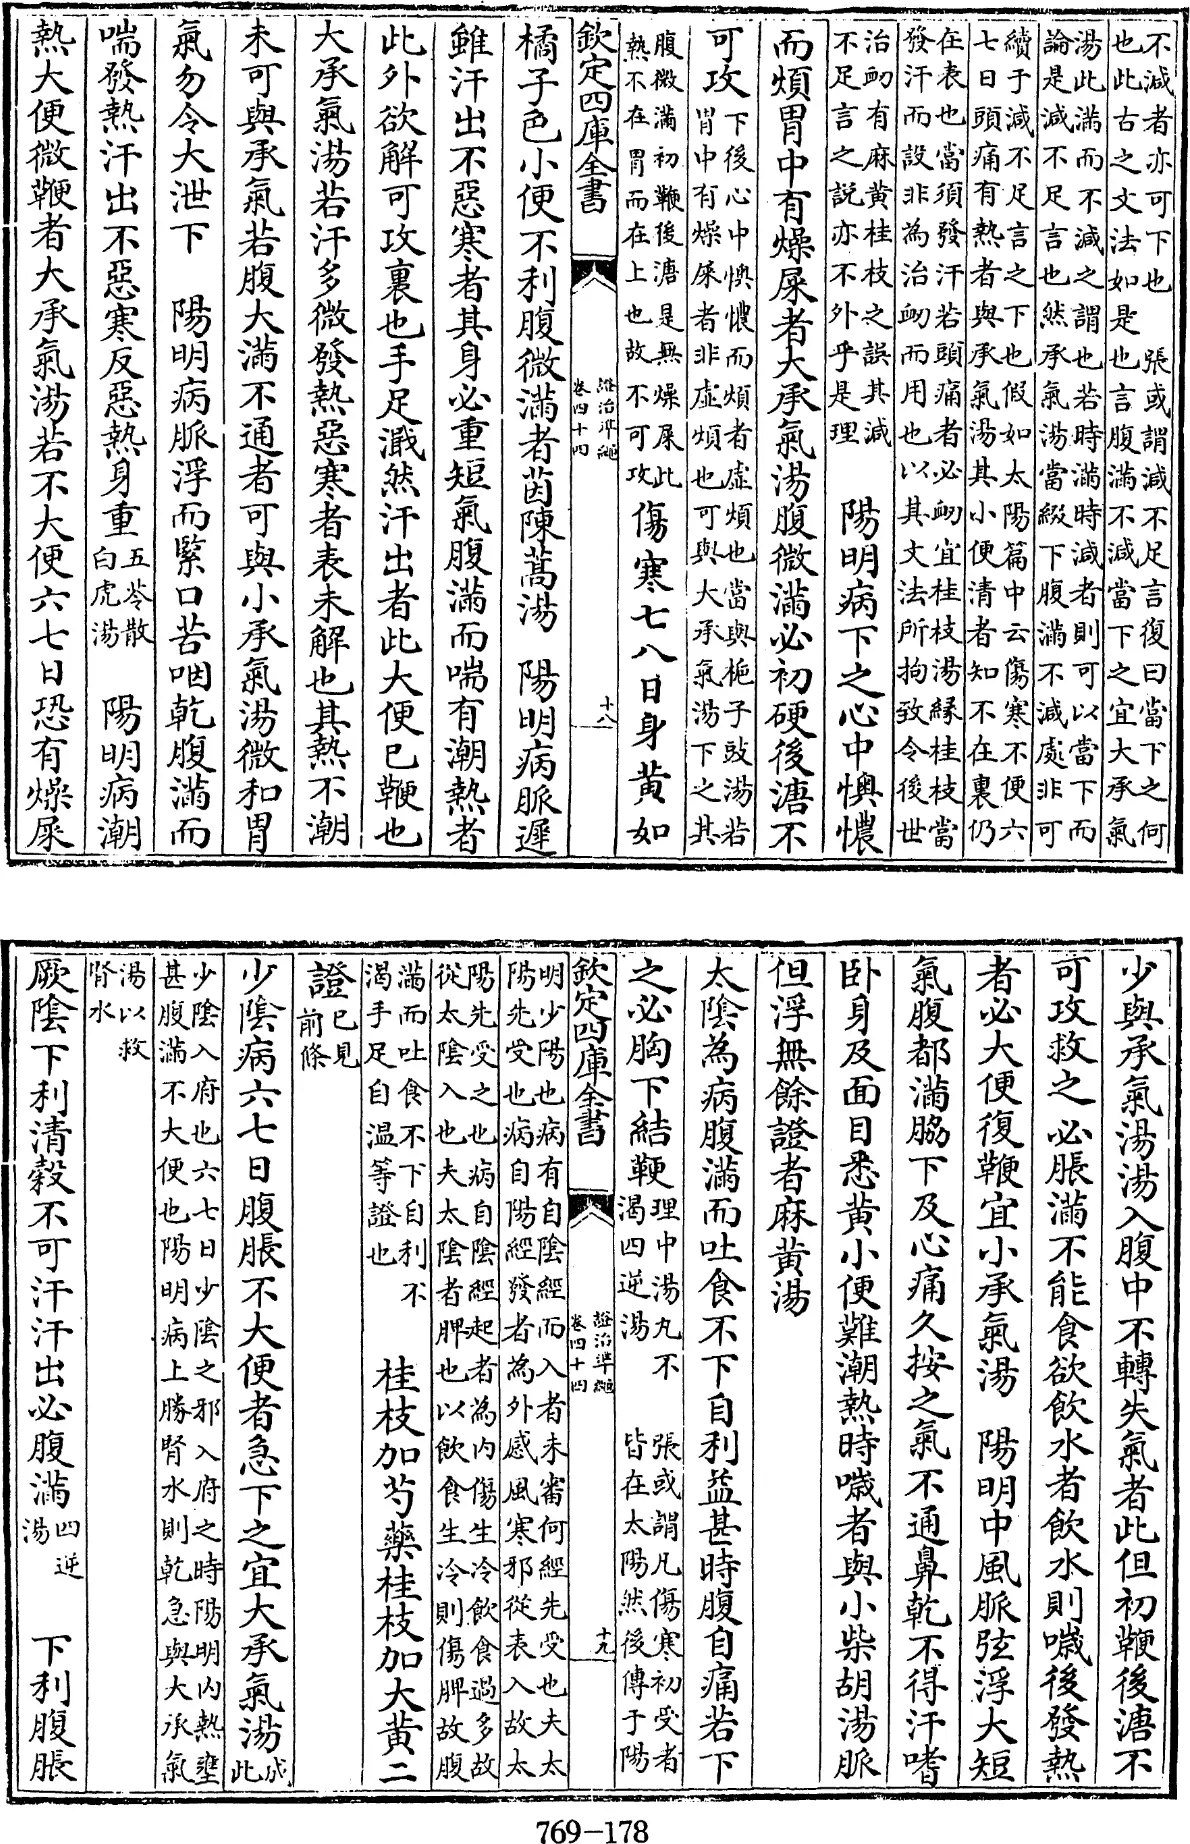 不減者亦可下也　張或謂減不足言復曰當下之何
也此古之文法如是也言腹滿不減當下之宜大承氣
湯此滿而不減之謂也若時滿時減者則可以當下而
論是減不足言也然承氣湯當綴下腹滿不減處非可
續于減不足言之下也假如太陽篇中云傷寒不便六
七日頭痛有熱者與承氣湯其小便清者知不在裏仍
在表也當須發汗若頭痛者必衂宜桂枝湯縁桂枝當
發汗而設非為治衂而用也以其文法所拘致令後世
治衂有麻黃桂枝之誤其減
不足言之説亦不外乎是理
陽明病下之心中懊憹
而煩胃中有燥屎者大承氣湯腹微滿必初硬後溏不
可攻
下後心中懊憹而煩者虛煩也當與梔子豉湯若
胃中有燥屎者非虛煩也可與大承氣湯下之其
腹微滿初鞕後溏是無燥屎此
熱不在胃而在上也故不可攻
傷寒七八日身黃如
欽定四庫全書
證治準繩
卷四十四
十八
橘子色小便不利腹微滿者茵陳蒿湯　陽明病脈遲
雖汗出不惡寒者其身必重短氣腹滿而喘有潮熱者
此外欲解可攻裏也手足濈然汗出者此大便已鞕也
大承氣湯若汗多微發熱惡寒者表未解也其熱不潮
未可與承氣若腹大滿不通者可與小承氣湯微和胃
氣勿令大泄下　陽明病脈浮而緊口苦咽乾腹滿而
喘發熱汗出不惡寒反惡熱身重
五苓散
白虎湯
陽明病潮
熱大便微鞕者大承氣湯若不大便六七日恐有燥屎
少與承氣湯湯入腹中不轉失氣者此但初鞕後溏不
可攻攻之必脹滿不能食欲飲水者飲水則噦後發熱
者必大便復鞕宜小承氣湯　陽明中風脈弦浮大短
氣腹都滿脇下及心痛久按之氣不通鼻乾不得汗嗜
臥身及面目悉黃小便難潮熱時噦者與小柴胡湯脈
但浮無餘證者麻黃湯
太陰為病腹滿而吐食不下自利益甚時腹自痛若下
之必胸下結鞕
理中湯丸不
渴四逆湯
張或謂凡傷寒初受者
皆在太陽然後傳于陽
欽定四庫全書
證治準繩
卷四十四
十九
明少陽也病有自陰經而入者未審何經先受也夫太
陽先受也病自陽經發者為外感風寒邪從表入故太
陽先受之也病自陰經起者為內傷生冷飲食過多故
從太陰入也夫太陰者脾也以飲食生冷則傷脾故腹
滿而吐食不下自利不
渴手足自温等證也
桂枝加芍藥桂枝加大黃二
證
已見
前條
少陰病六七日腹脹不大便者急下之宜大承氣湯
成
此
少陰入府也六七日少陰之邪入府之時陽明內熱壅
甚腹滿不大便也陽明病上勝腎水則乾急與大承氣
湯以救
腎水
厥陰下利清穀不可汗汗出必腹滿
四逆
湯
下利腹脹
769-178